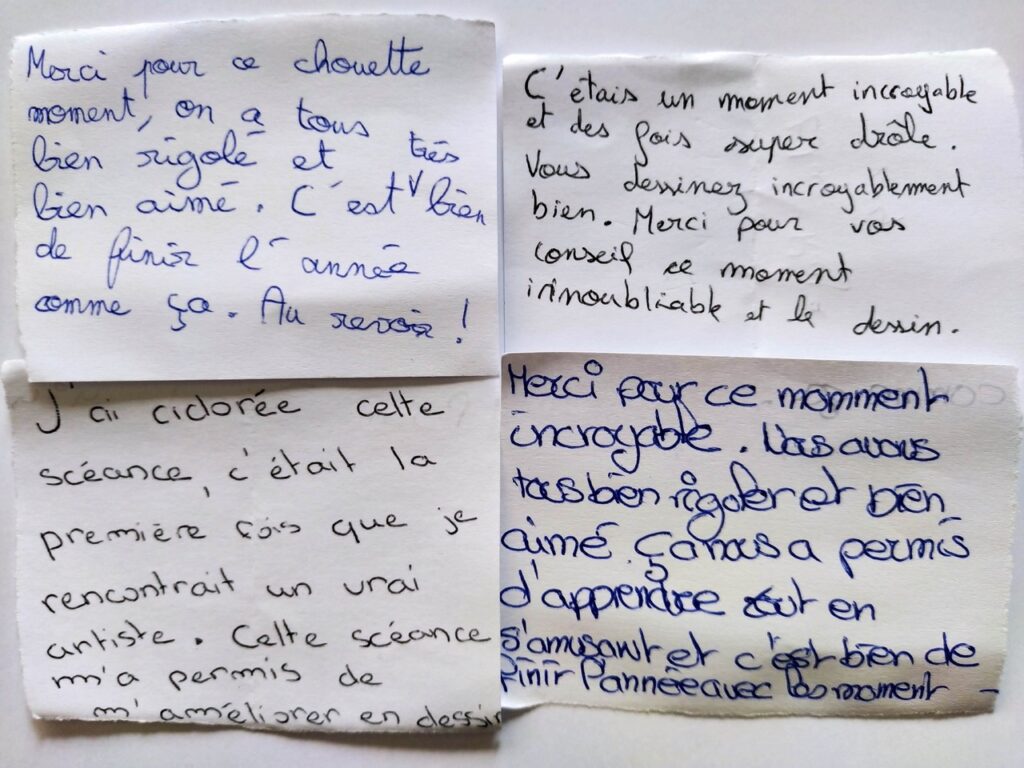 Merci pour ce chouette
moment, on a tous
bien rigolé et très
bien aimé. C'est bien
de finir l'année
comme ça. Au revoir !
C'étais un moment incroyable
et des fois super drôle.
Vous dessinez incroyablement
bien. Merci pour vos
conseil ce moment
irinoubliable et le dessin.
J'aii cidorée cette
scéance, c'était la
première fois que je
rencontrait un vrai
artiste. Cette scéance
m'a permis de
m'améliorer en dessin
Merci pour ce momment
incroyable. Nous avons
tous bien rigoler et bien
aimé. ça nous a permis
d'apprendre tout en
s'amusant et c'est bien de
finir l'année avec ce moment